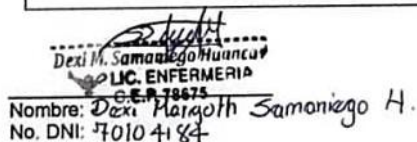 Dexi M. Samaniego Huancay
LIC. ENFERMERIA
C.E.P. 78675
Nombre: Dexi Margoth Samaniego H.
No. DNI: 70104184